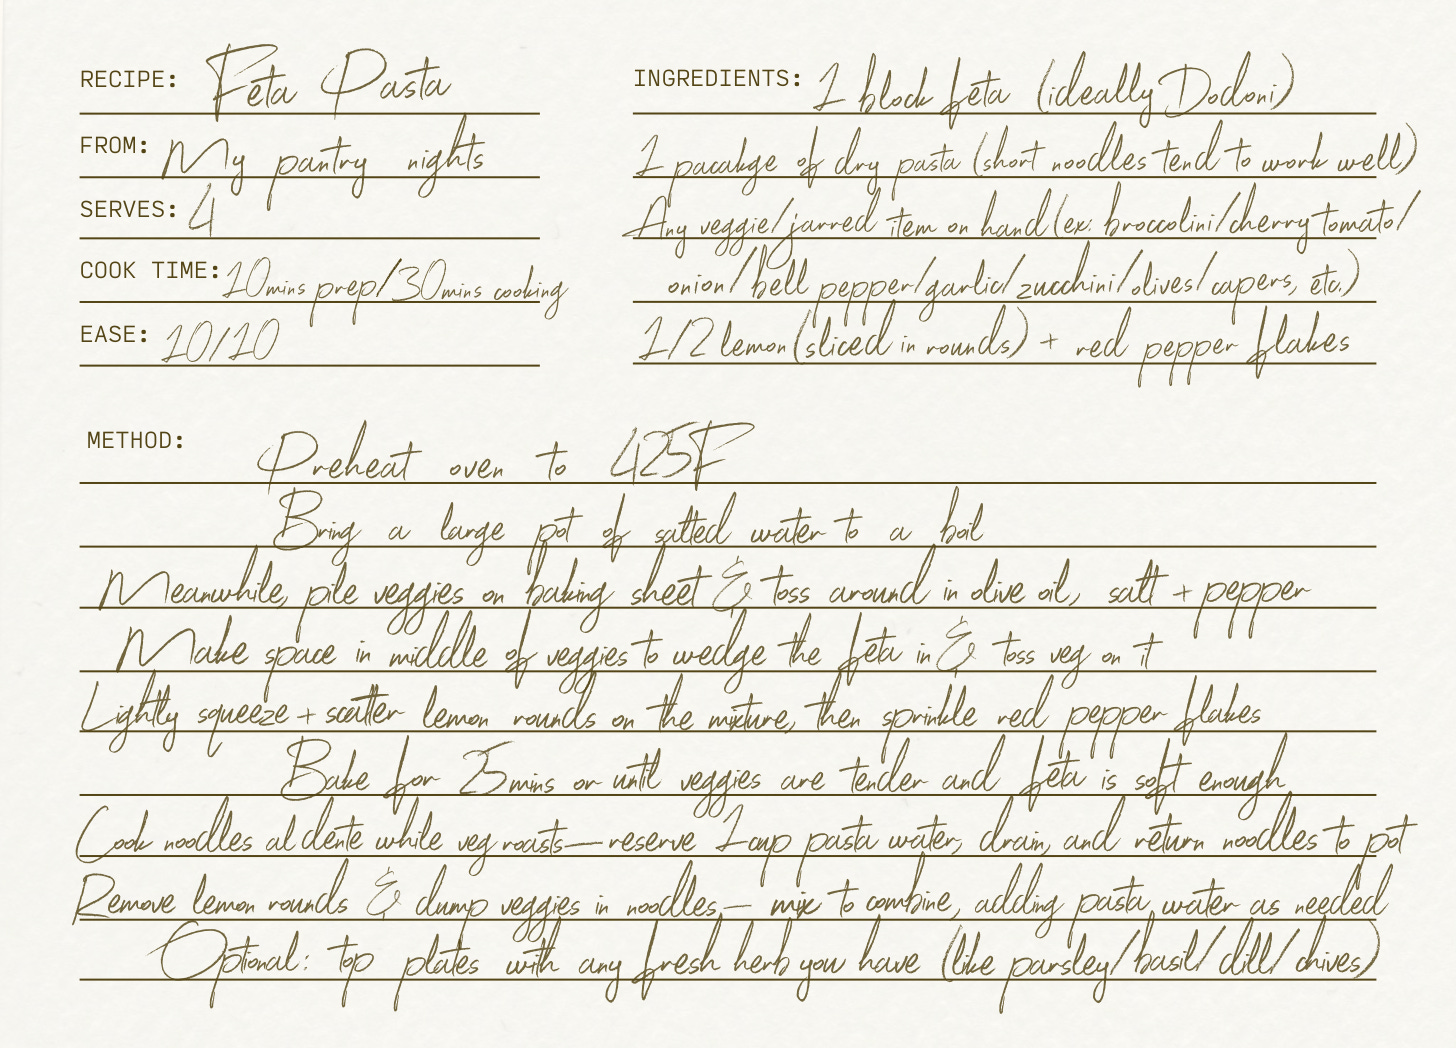 RECIPE: Feta Pasta
FROM: My pantry nights
SERVES: 4
COOK TIME: 10mins prep/30mins cooking
EASE: 10/10
INGREDIENTS: 1 block feta (ideally Dodoni)
1 pacakge of dry pasta (short noodles tend to work well)
Any veggie/jarred item on hand (ex: broccolini/cherry tomato/
onion/bell pepper/garlic/zucchini/olives/capers, etc.)
1/2 lemon (sliced in rounds) + red pepper flakes
METHOD: Preheat oven to 425F
Bring a large pot of salted water to a boil
Meanwhile, pile veggies on baking sheet & toss around in olive oil, salt + pepper
Make space in middle of veggies to wedge the feta in & toss veg on it
Lightly squeeze + scatter lemon rounds on the mixture, then sprinkle red pepper flakes
Bake for 25mins or until veggies are tender and feta is soft enough
Cook noodles al dente while veg roasts—reserve 1 cup pasta water, drain, and return noodles to pot
Remove lemon rounds & dump veggies in noodles— mix to combine, adding pasta water as needed
Optional: top plates with any fresh herb you have (like parsley/basil/dill/chives)